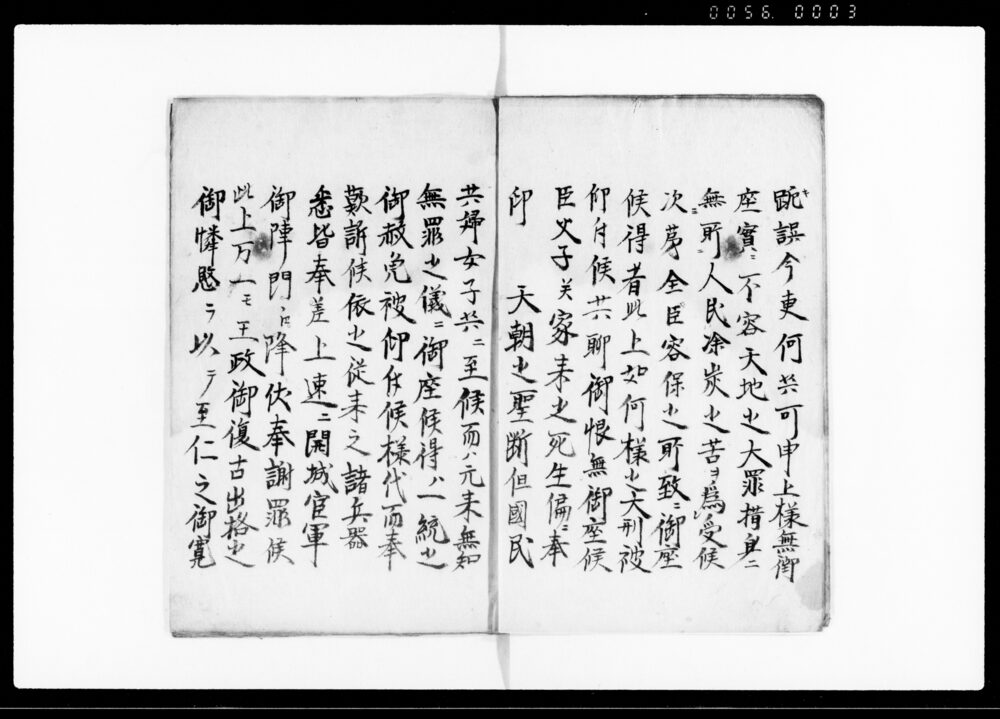 0056 0003
蹠誤今更何共可申上様無御
座實ニ不容天地之大罪措身ニ
無所人民塗炭之苦ヲ為受候
次第全臣容保之所致ニ御座
候得者此上如何様之天刑被
仰付候共聊御恨無御座候
臣父子并家来之死生偏ニ奉
仰 天朝之聖断但國民
共婦女子共ニ至候而ハ元来無知
無罪之儀ニ御座候得ハ一統之
御赦免被仰付候様代而奉
歎訴候依之従来之諸兵器
悉皆奉差上速ニ開城官軍
御陣門江降伏奉謝罪候
此上万一モ王政御復古出格之
御憐愍ヲ以テ至仁之御寛